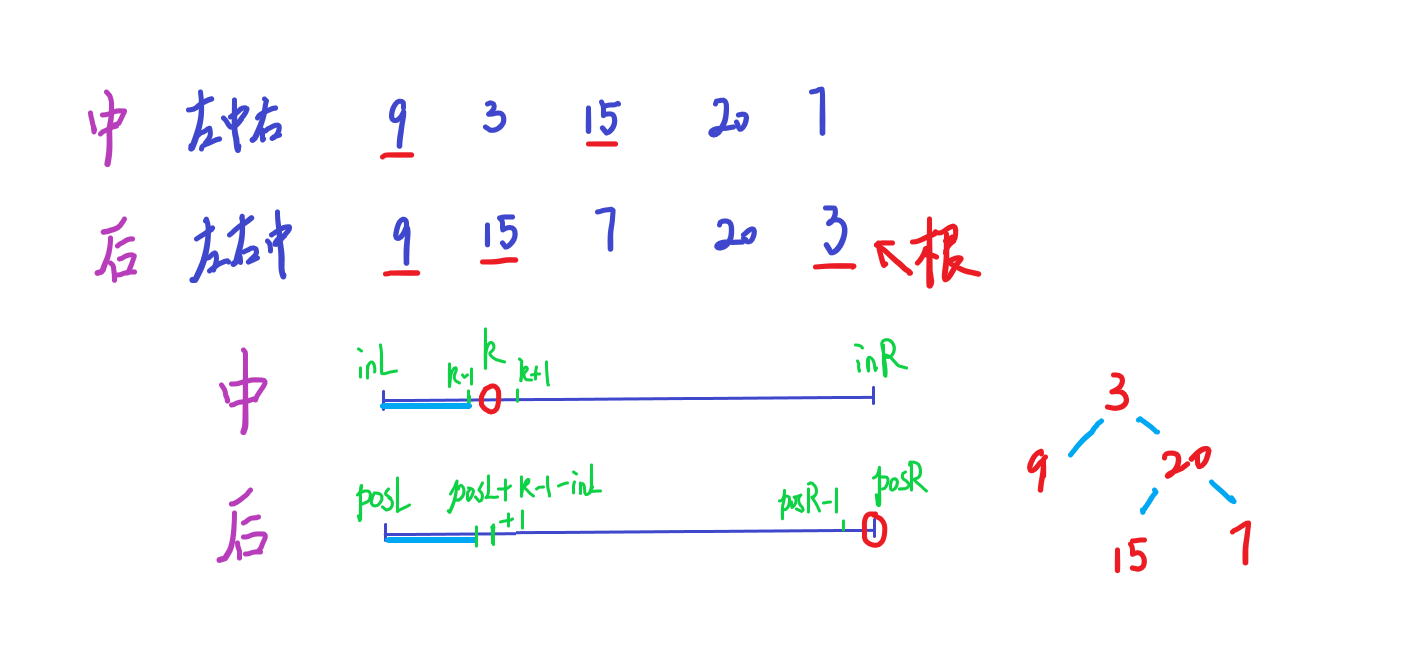 中 左中右 9 3 15 20 7
后 左右中 9 15 7 20 3 根
inL k-1 k k+1 inR
中
3
9 20
posL posL+k-1-inL posR-1 posR
+1
后
15 7